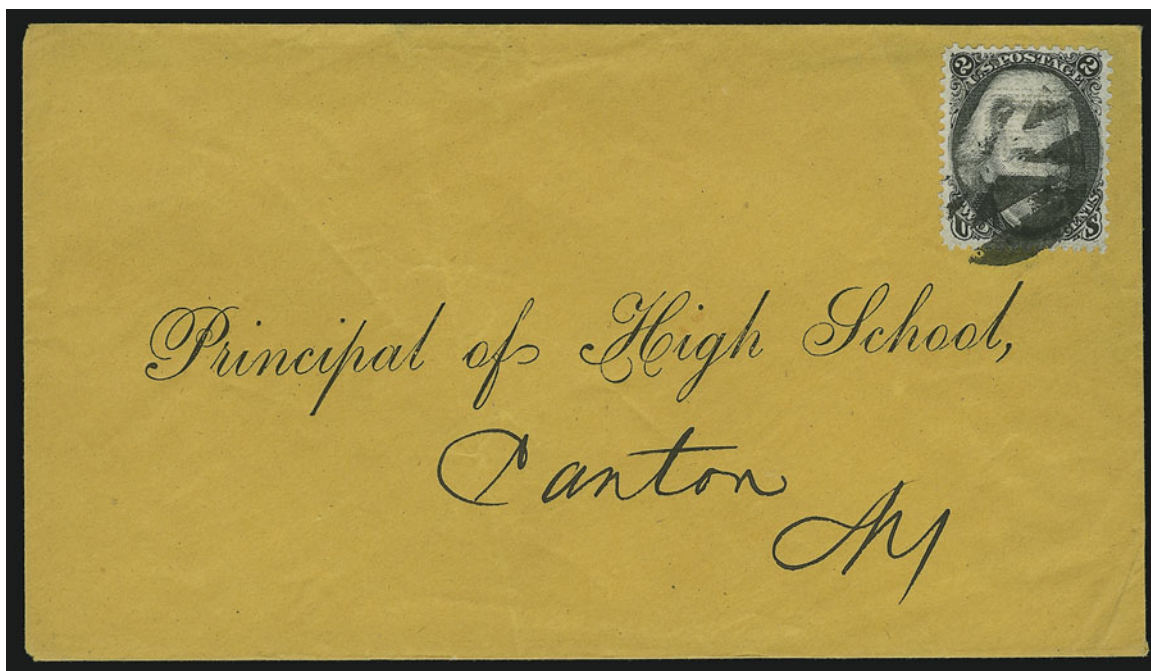 2 U.S. POSTAGE 2
U CENTS S
Principal of High School,
Canton
NY